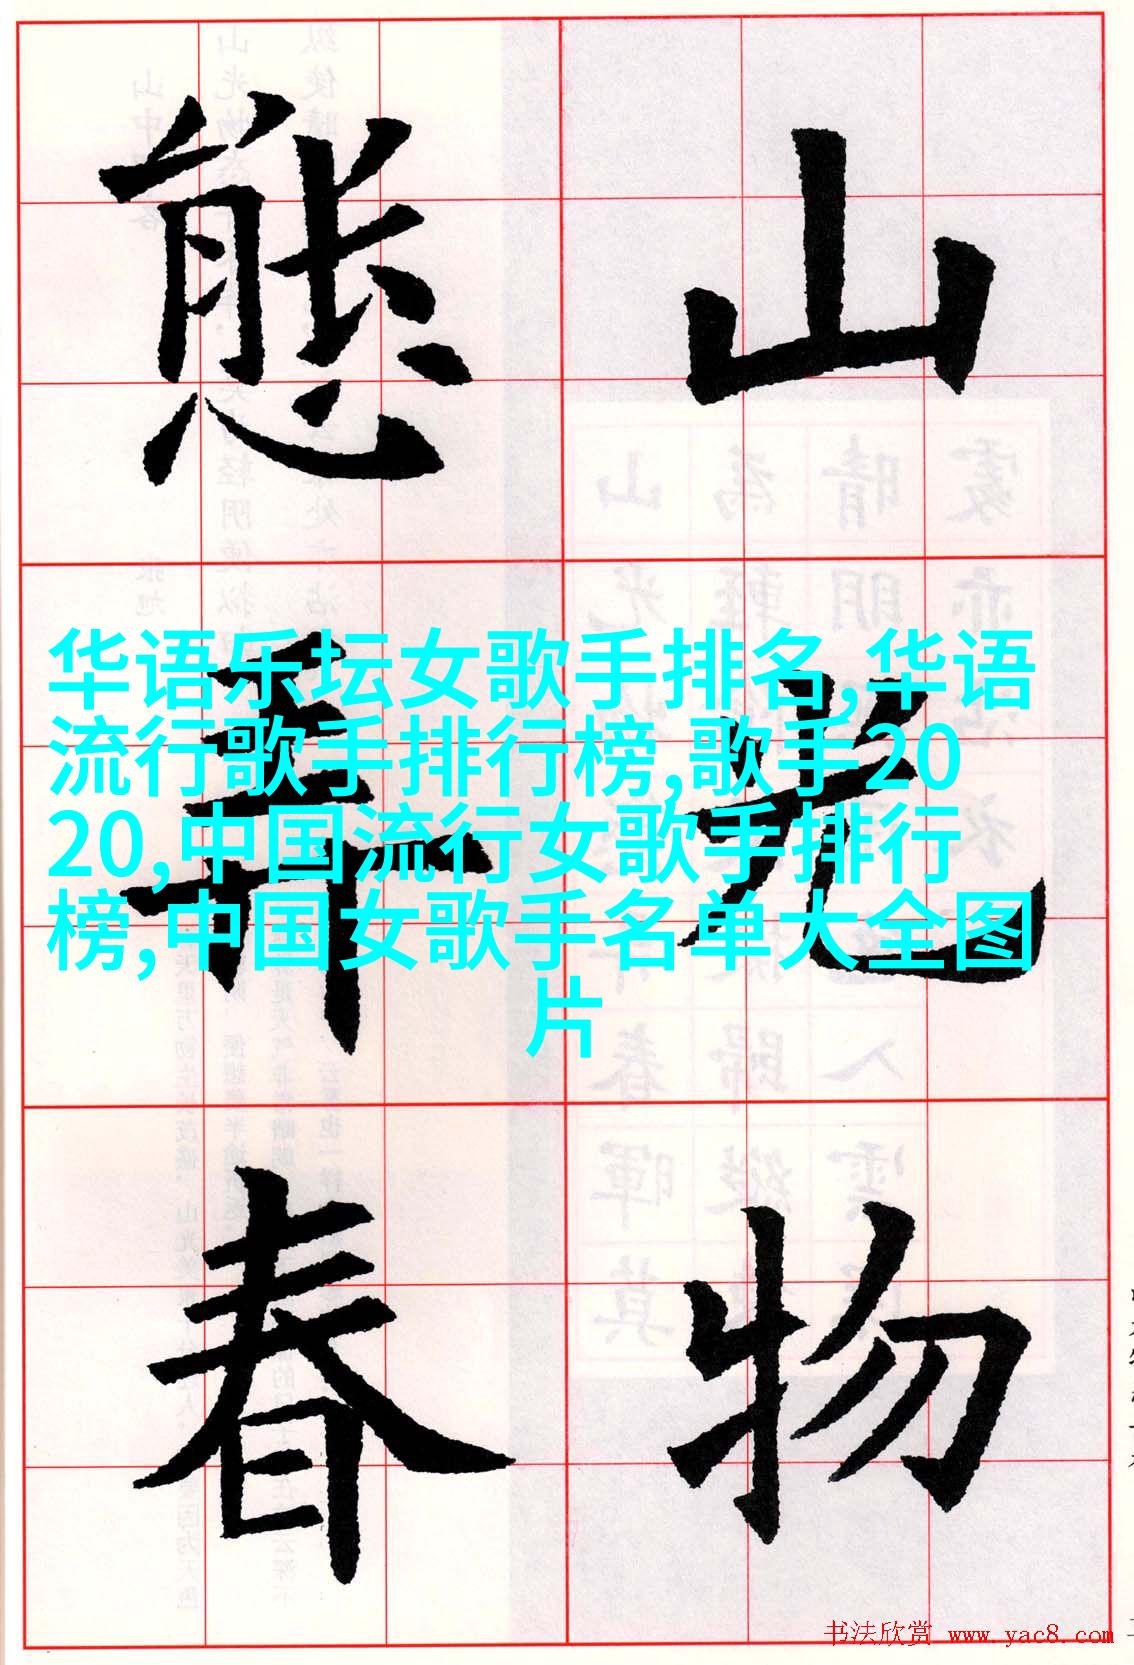 山光物
態弄春
华语乐坛女歌手排名,华语
流行歌手排行榜,歌手20
20,中国流行女歌手排行
榜,中国女歌手名单大全图
片
书法欣赏 www.yac8.com